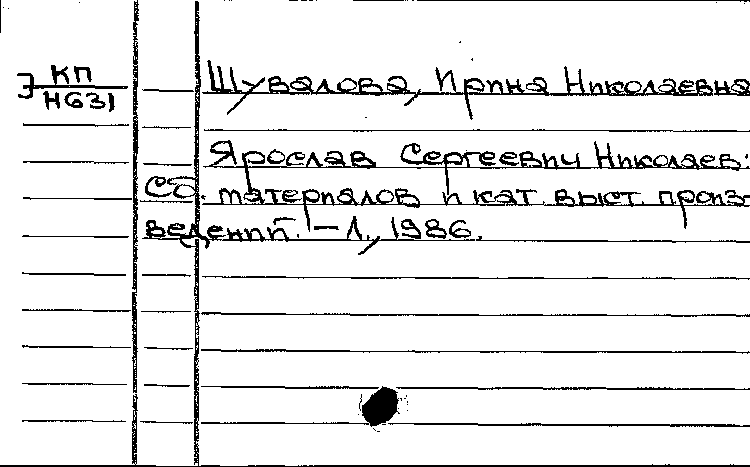 Э КП
Н631
Шувалова, Ирина Николаевна
Ярослав Сергеевич Николаев:
Сб. материалов и кат. выст. произ-
ведений. – Л., 1986.